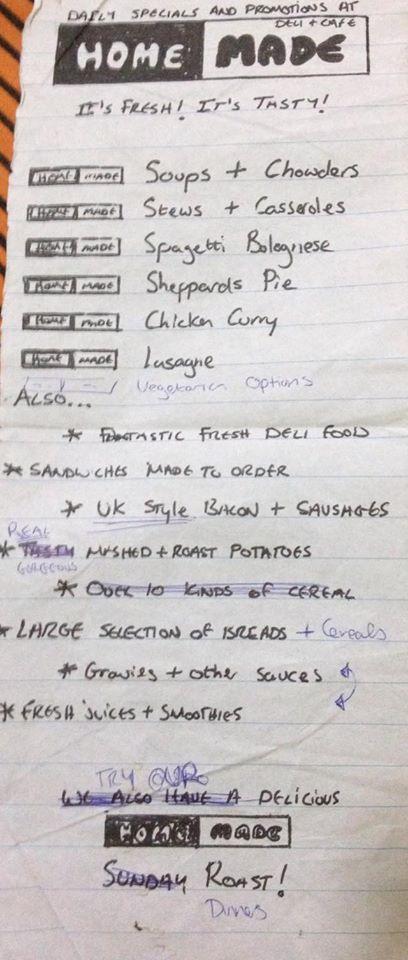 DAILY SPECIALS AND PROMOTIONS AT
HOME MADE
DELI + CAFE
IT'S FRESH! IT'S TASTY!
HOME MADE Soups + Chowders
HOME MADE Stews + Casseroles
HOME MADE Spagetti Bolognese
HOME MADE Sheppards Pie
HOME MADE Chicken Curry
HOME MADE Lasagne
Vegetarian Options
ALSO...
* FANTASTIC FRESH DELI FOOD
* SANDWICHES MADE TO ORDER
* UK STYLE BACON + SAUSAGES
REAL
* TASTY MUSHED + ROAST POTATOES
GORGEOUS
* OVER 10 KINDS OF CEREAL
* LARGE SELECTION OF BREADS + Cereals
* Gravies + other sauces
* FRESH JUICES + SMOOTHIES
TRY OUR
WE ALSO HAVE A DELICIOUS
HOME MADE
SUNDAY ROAST!
Dinner